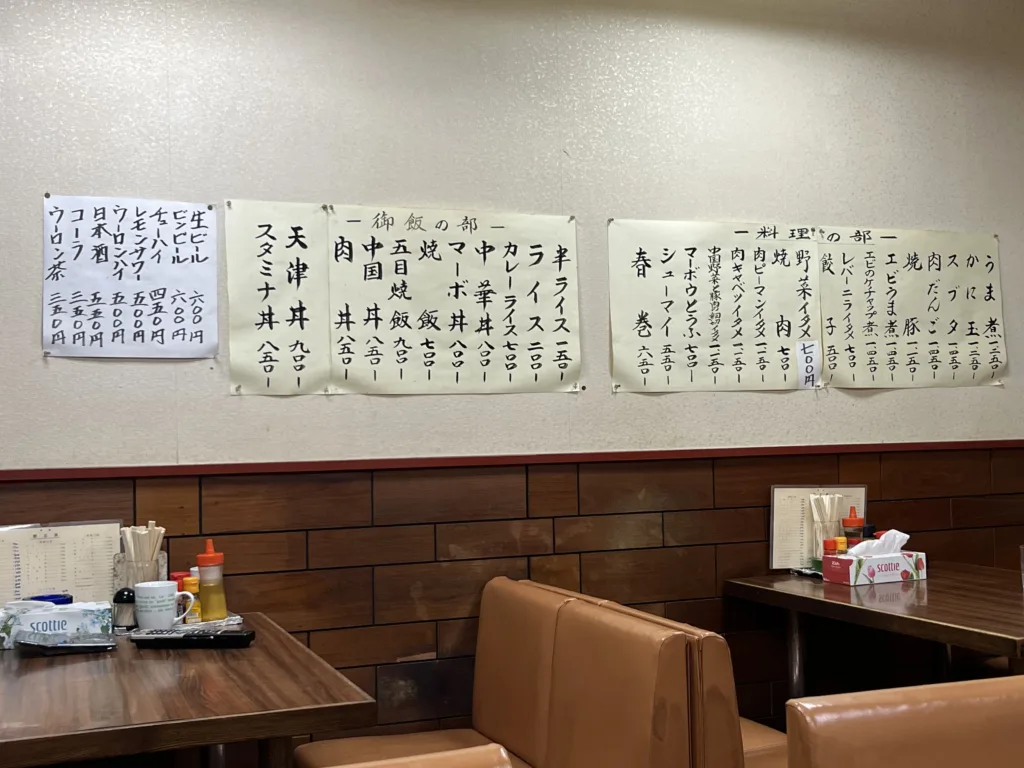 －料理の部－
うま煮 一二五〇－
かに玉 一二五〇－
スブタ 一四五〇－
肉だんご 一四五〇－
焼豚 一一五〇－
エビうま煮 一四五〇－
エビのケチャップ煮 一四五〇－
レバーニライタメ 七〇〇－
餃子 五〇〇－
野菜イタメ 七〇〇円
焼肉 七〇〇－
肉ピーマンイタメ 一一五〇－
肉キャベツイタメ 一一五〇－
中国野菜と豚肉の イタメ 一一五〇－
マーボウとうふ 七〇〇－
シューマイ 五五〇－
春巻 六五〇－
－御飯の部－
半ライス 一五〇－
ライス 二〇〇－
カレーライス 七〇〇－
中華丼 八五〇－
マーボ丼 八〇〇－
焼飯 七〇〇－
五目焼飯 九〇〇－
中国丼 八五〇－
肉丼 八五〇－
天津丼 九〇〇－
スタミナ丼 八五〇－
生ビール 六〇〇円
ビンビール 六〇〇円
チューハイ 四五〇円
レモンサワー 五〇〇円
ウーロンハイ 五〇〇円
日本酒 五五〇円
コーラ 三五〇円
ウーロン茶 三五〇円
scottie
scottie